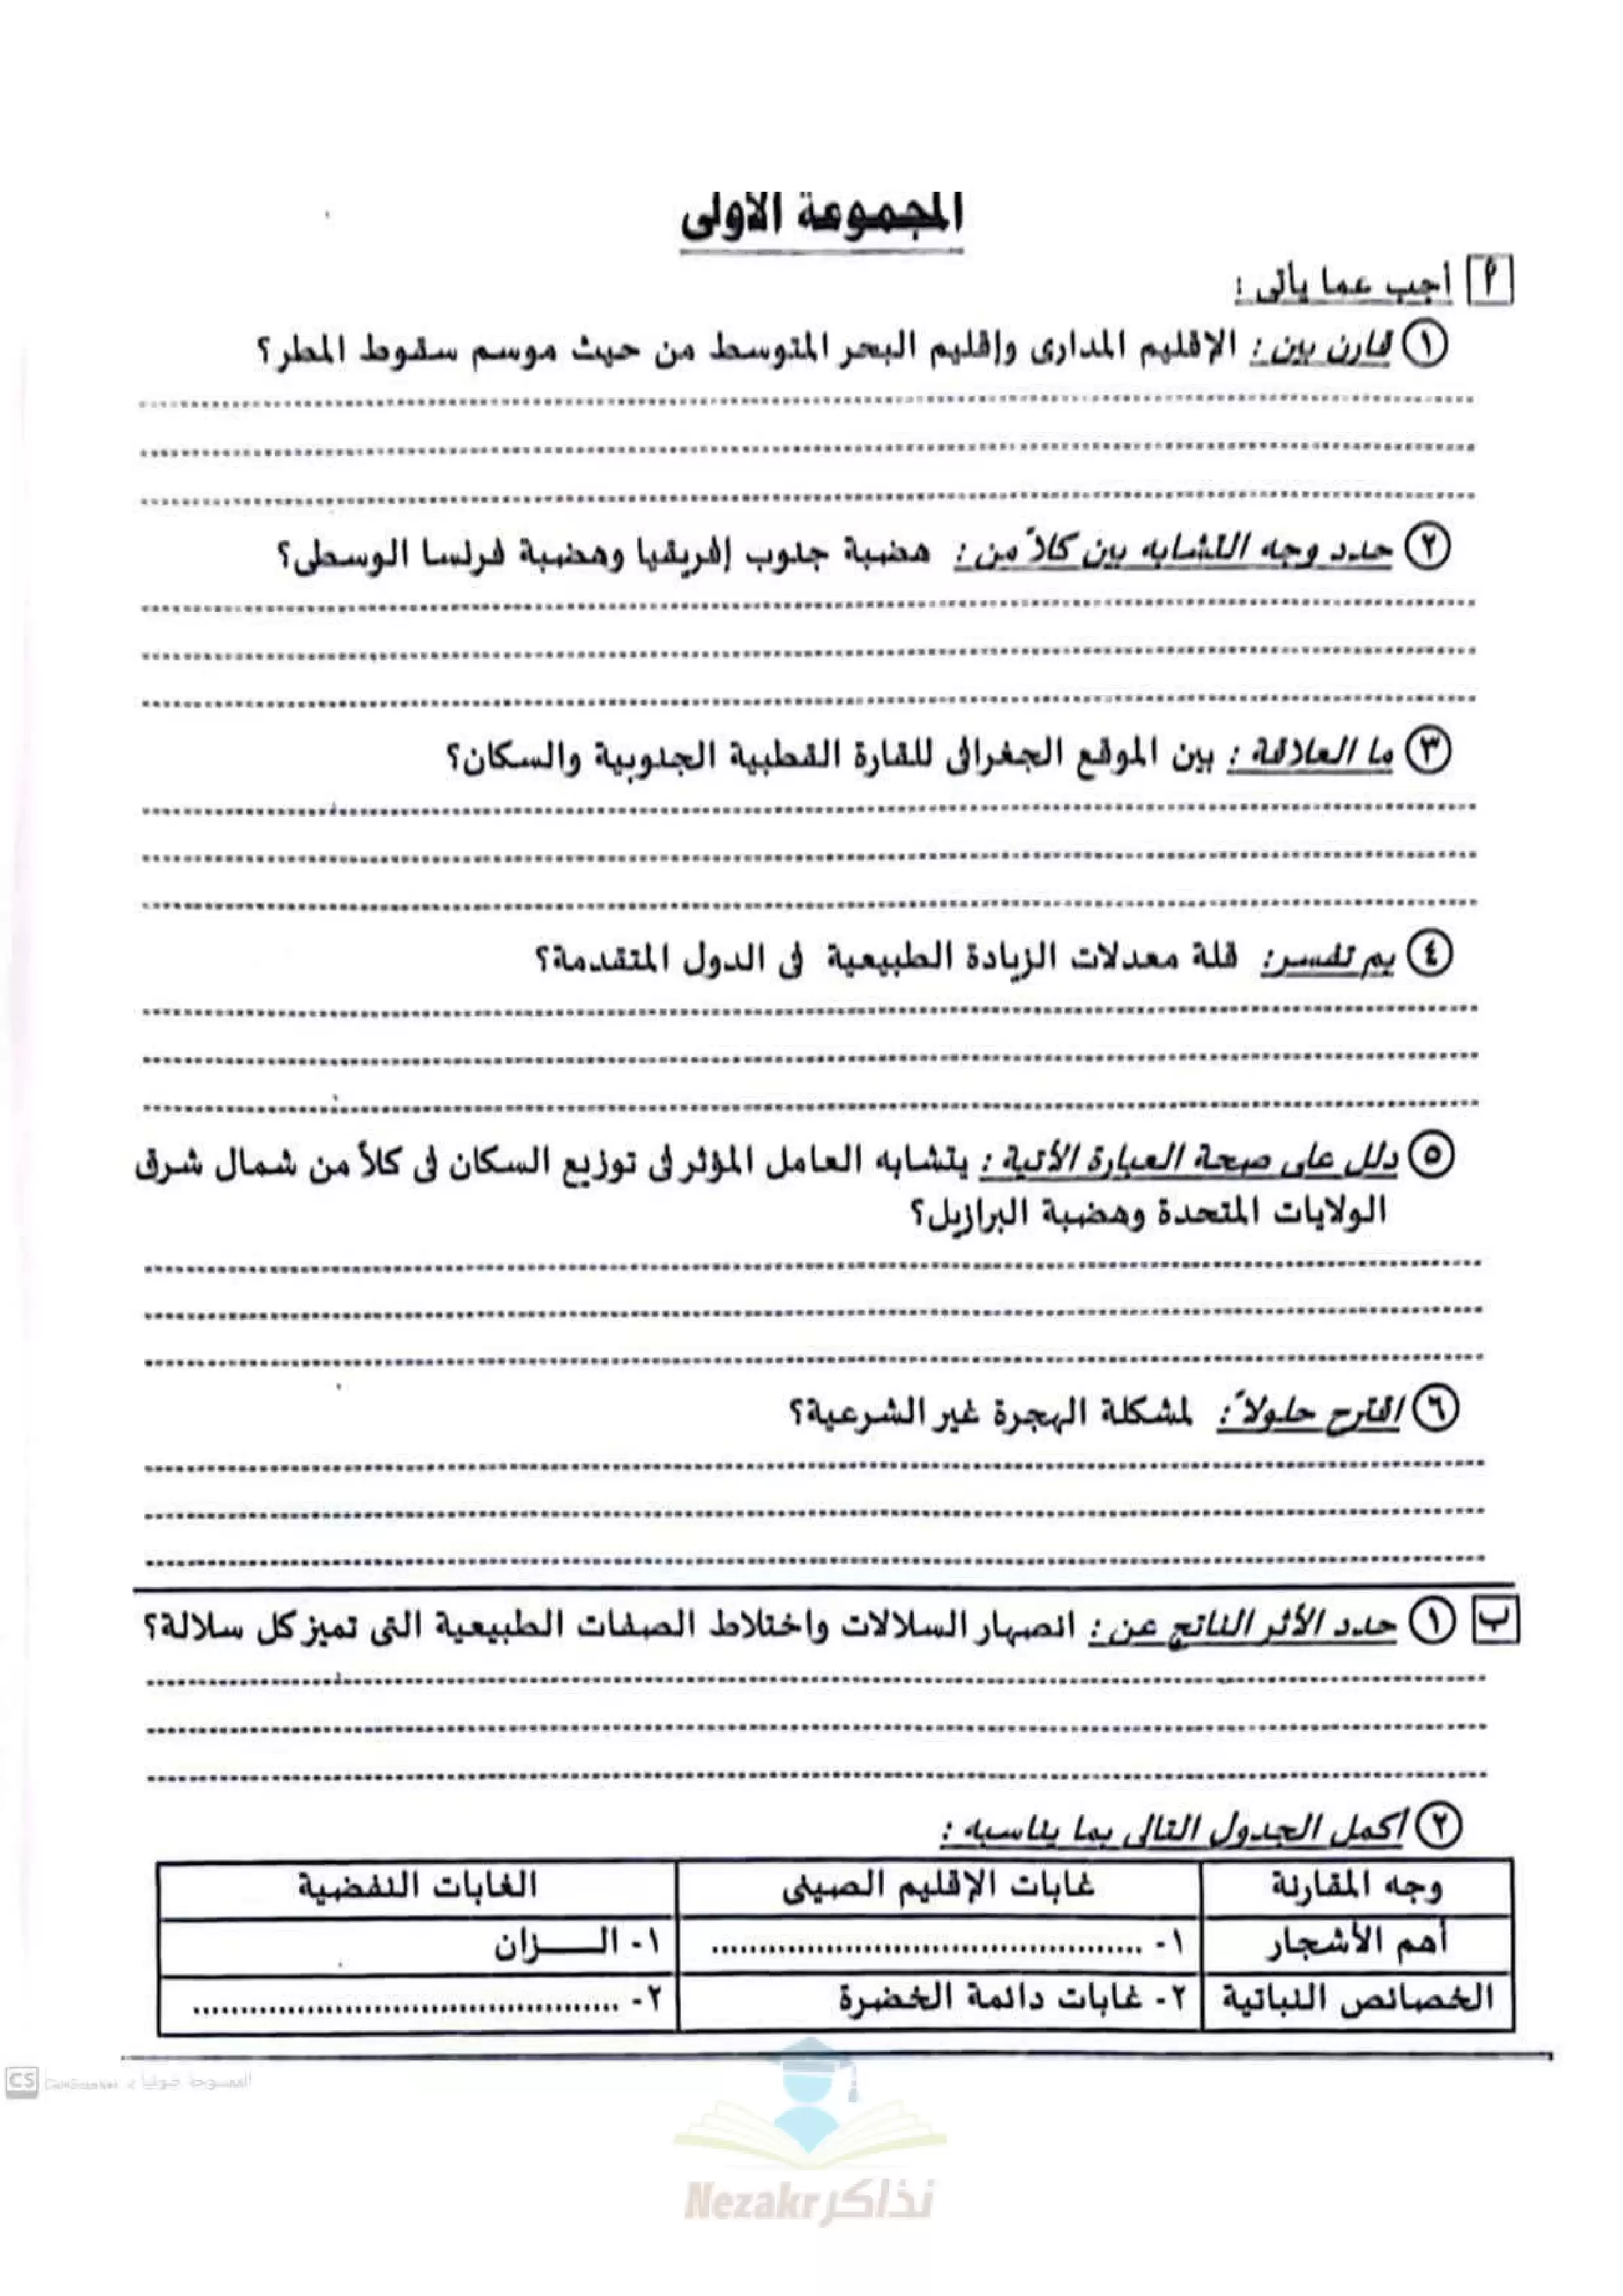 المجموعة الاولى
أ أجب عما يأتى :
١ قارن بين : الإقليم المدارى وإقليم البحر المتوسط من حيث موسم سقوط المطر؟
٢ حدد وجه التشابه بين كلاً من : هضبة جنوب إفريقيا وهضبة فرنسا الوسطى؟
٣ ما العلاقة : بين الموقع الجغرافى للقارة القطبية الجنوبية والسكان؟
٤ بم تفسر : قلة معدلات الزيادة الطبيعية فى الدول المتقدمة؟
٥ دلل على صحة العبارة الأتية : يتشابه العامل المؤثر فى توزيع السكان فى كلاً من شمال شرق
الولايات المتحدة وهضبة البرازيل؟
٦ اقترح حلولاً : لمشكلة الهجرة غير الشرعية؟
ب ١ حدد الأثر الناتج عن : انصهار السلالات واختلاط الصفات الطبيعية التى تميز كل سلالة؟
٢ أكمل الجدول التالى بما يناسبه :
وجه المقارنة غابات الإقليم الصينى الغابات النفضية
أهم الأشجار ١- ............ ١- الــزان
الخصائص النباتية ٢- غابات دائمة الخضرة ٢- ............
CS الممسوحة ضوئيا بـ CamScanner
نذاكر Nezakr